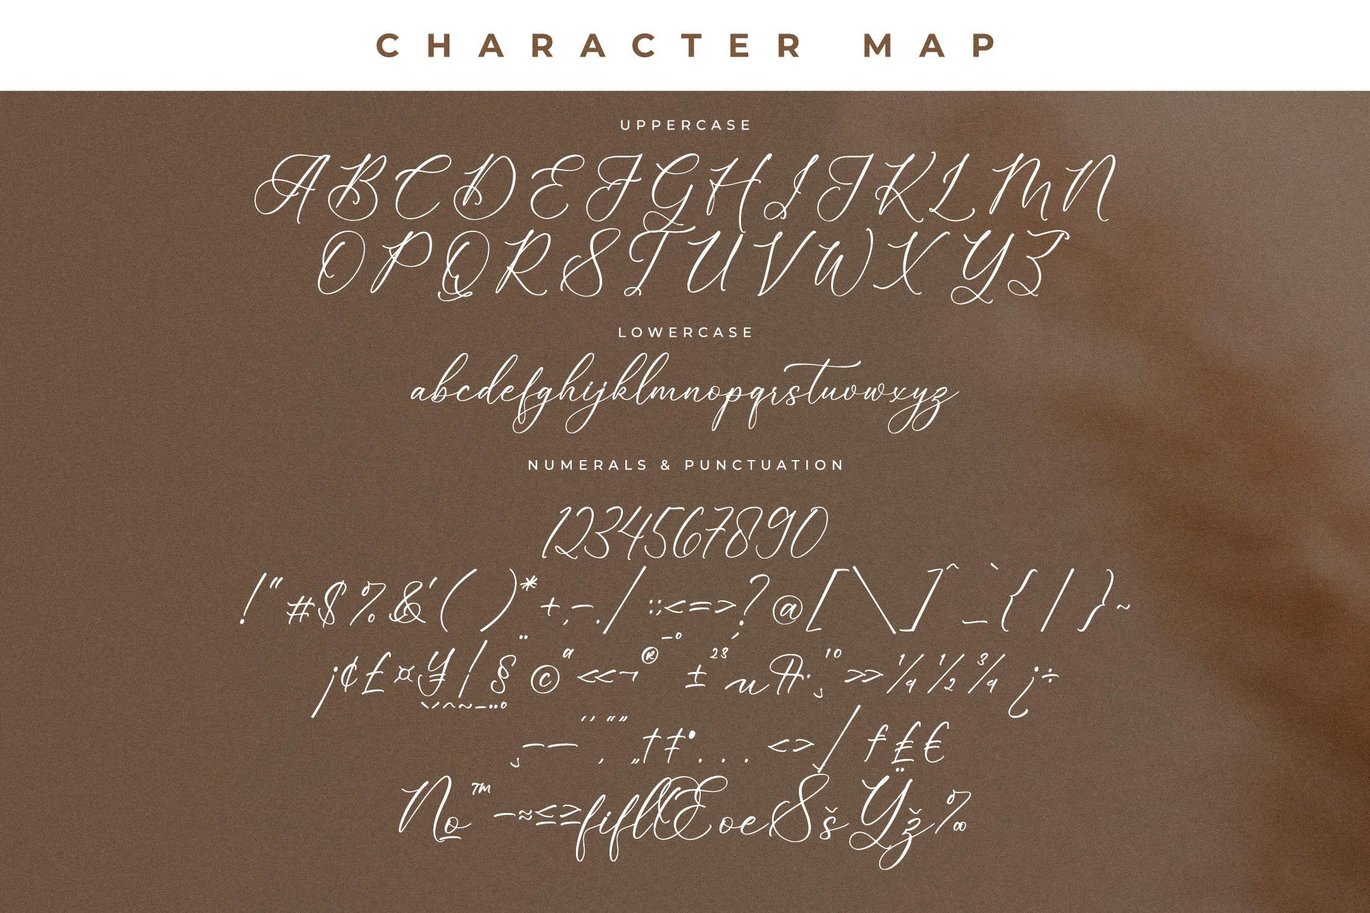 CHARACTER MAP
UPPERCASE
ABCDEFGHIJKLMN
OPQRSTUVWXYZ
LOWERCASE
abcdefghijklmnopqrstuvwxyz
NUMERALS & PUNCTUATION
1234567890
!"#$%&'()*+,-./:;<=>?@[\]^_`{|}~
¡¢£¤¥¦§¨©ª«¬®¯°±²³´µ¶·¸¹º»¼½¾¿÷
‚ „ † ‡ • … ‹ › ⁄ ƒ ₤ €
№ ™ − ≈ ≤ ≥ fi fl Œ œ Š š Ÿ ž ‰